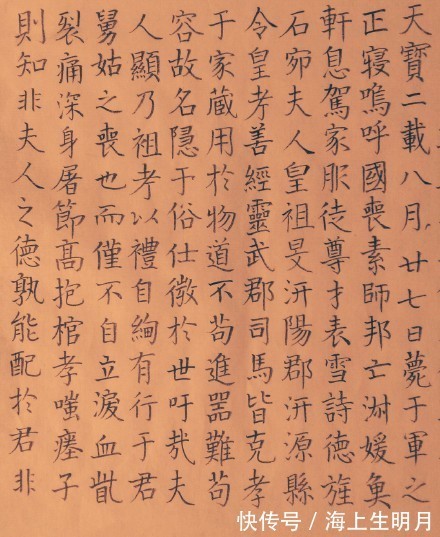 天寶二載八月廿七日薨于軍之
正寢嗚呼國喪素師邦亡淑媛奠
軒息駕家服徒尊才表雪詩德旌
石窌夫人皇祖旻汧陽郡汧源縣
令皇考善經靈武郡司馬皆克孝
于家蔵用於物道不苟進噐難苟
容故名隱于俗仕徴於世吁哉夫
人顯乃祖考以禮自絢有行于君
舅姑之喪也而僅不自立淚血
裂痛深身屠節髙抱棺孝嗤瘞子
則知非夫人之德孰能配於君非
快传号／海上生明月